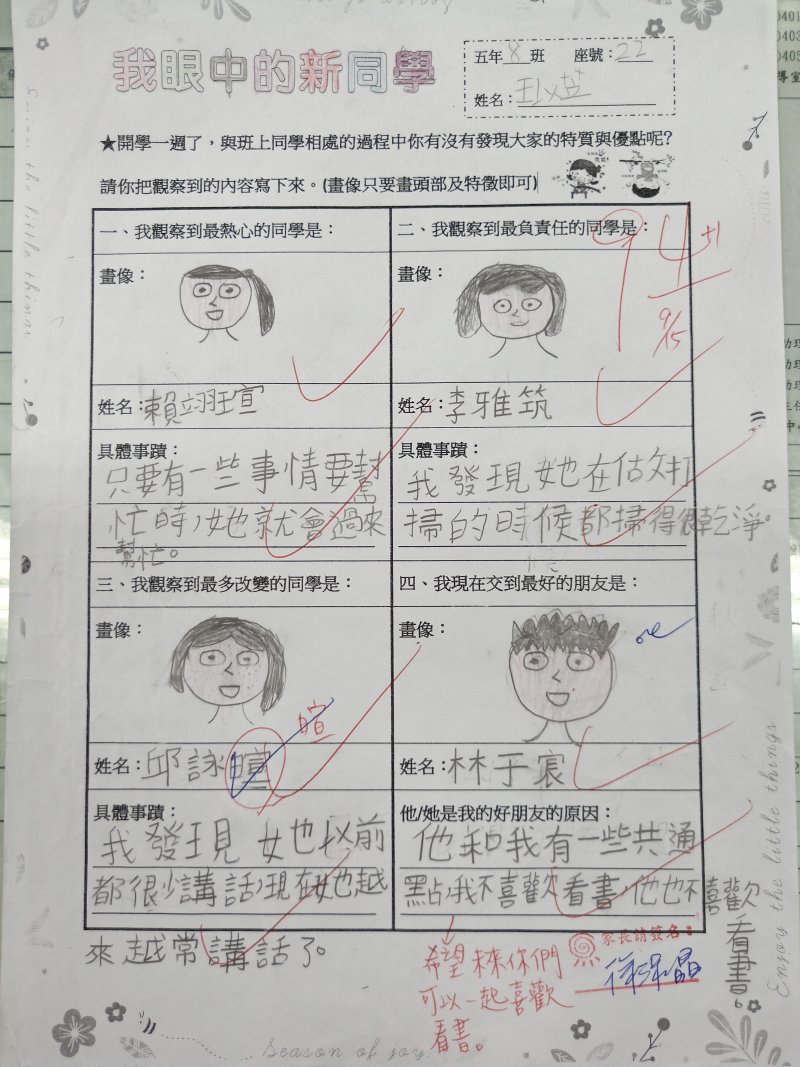 我眼中的新同學
五年8班 座號：22
姓名：
★開學一週了，與班上同學相處的過程中你有沒有發現大家的特質與優點呢？
請你把觀察到的內容寫下來。(畫像只要畫頭部及特徵即可)
94 +1
9/15
一、我觀察到最熱心的同學是：
畫像：
姓名：賴翊瑄
具體事蹟：
只要有一些事情要幫
忙時，她就會過來
幫忙。
二、我觀察到最負責任的同學是：
畫像：
姓名：李雅筑
具體事蹟：
我發現她在估文打
掃的時候都掃得很乾淨。
三、我觀察到最多改變的同學是：
畫像：
姓名：邱詠暄
暄
具體事蹟：
我發現她以前
都很少講話，現在她越
來越常講話了。
四、我現在交到最好的朋友是：
畫像：
姓名：林于宸
他/她是我的好朋友的原因：
他和我有一些共通
點，我不喜歡看書，他也不喜歡
看書。
希望未來你們
可以一起喜歡
看書。
家長請簽名：
Enjoy the little things
Season of joy